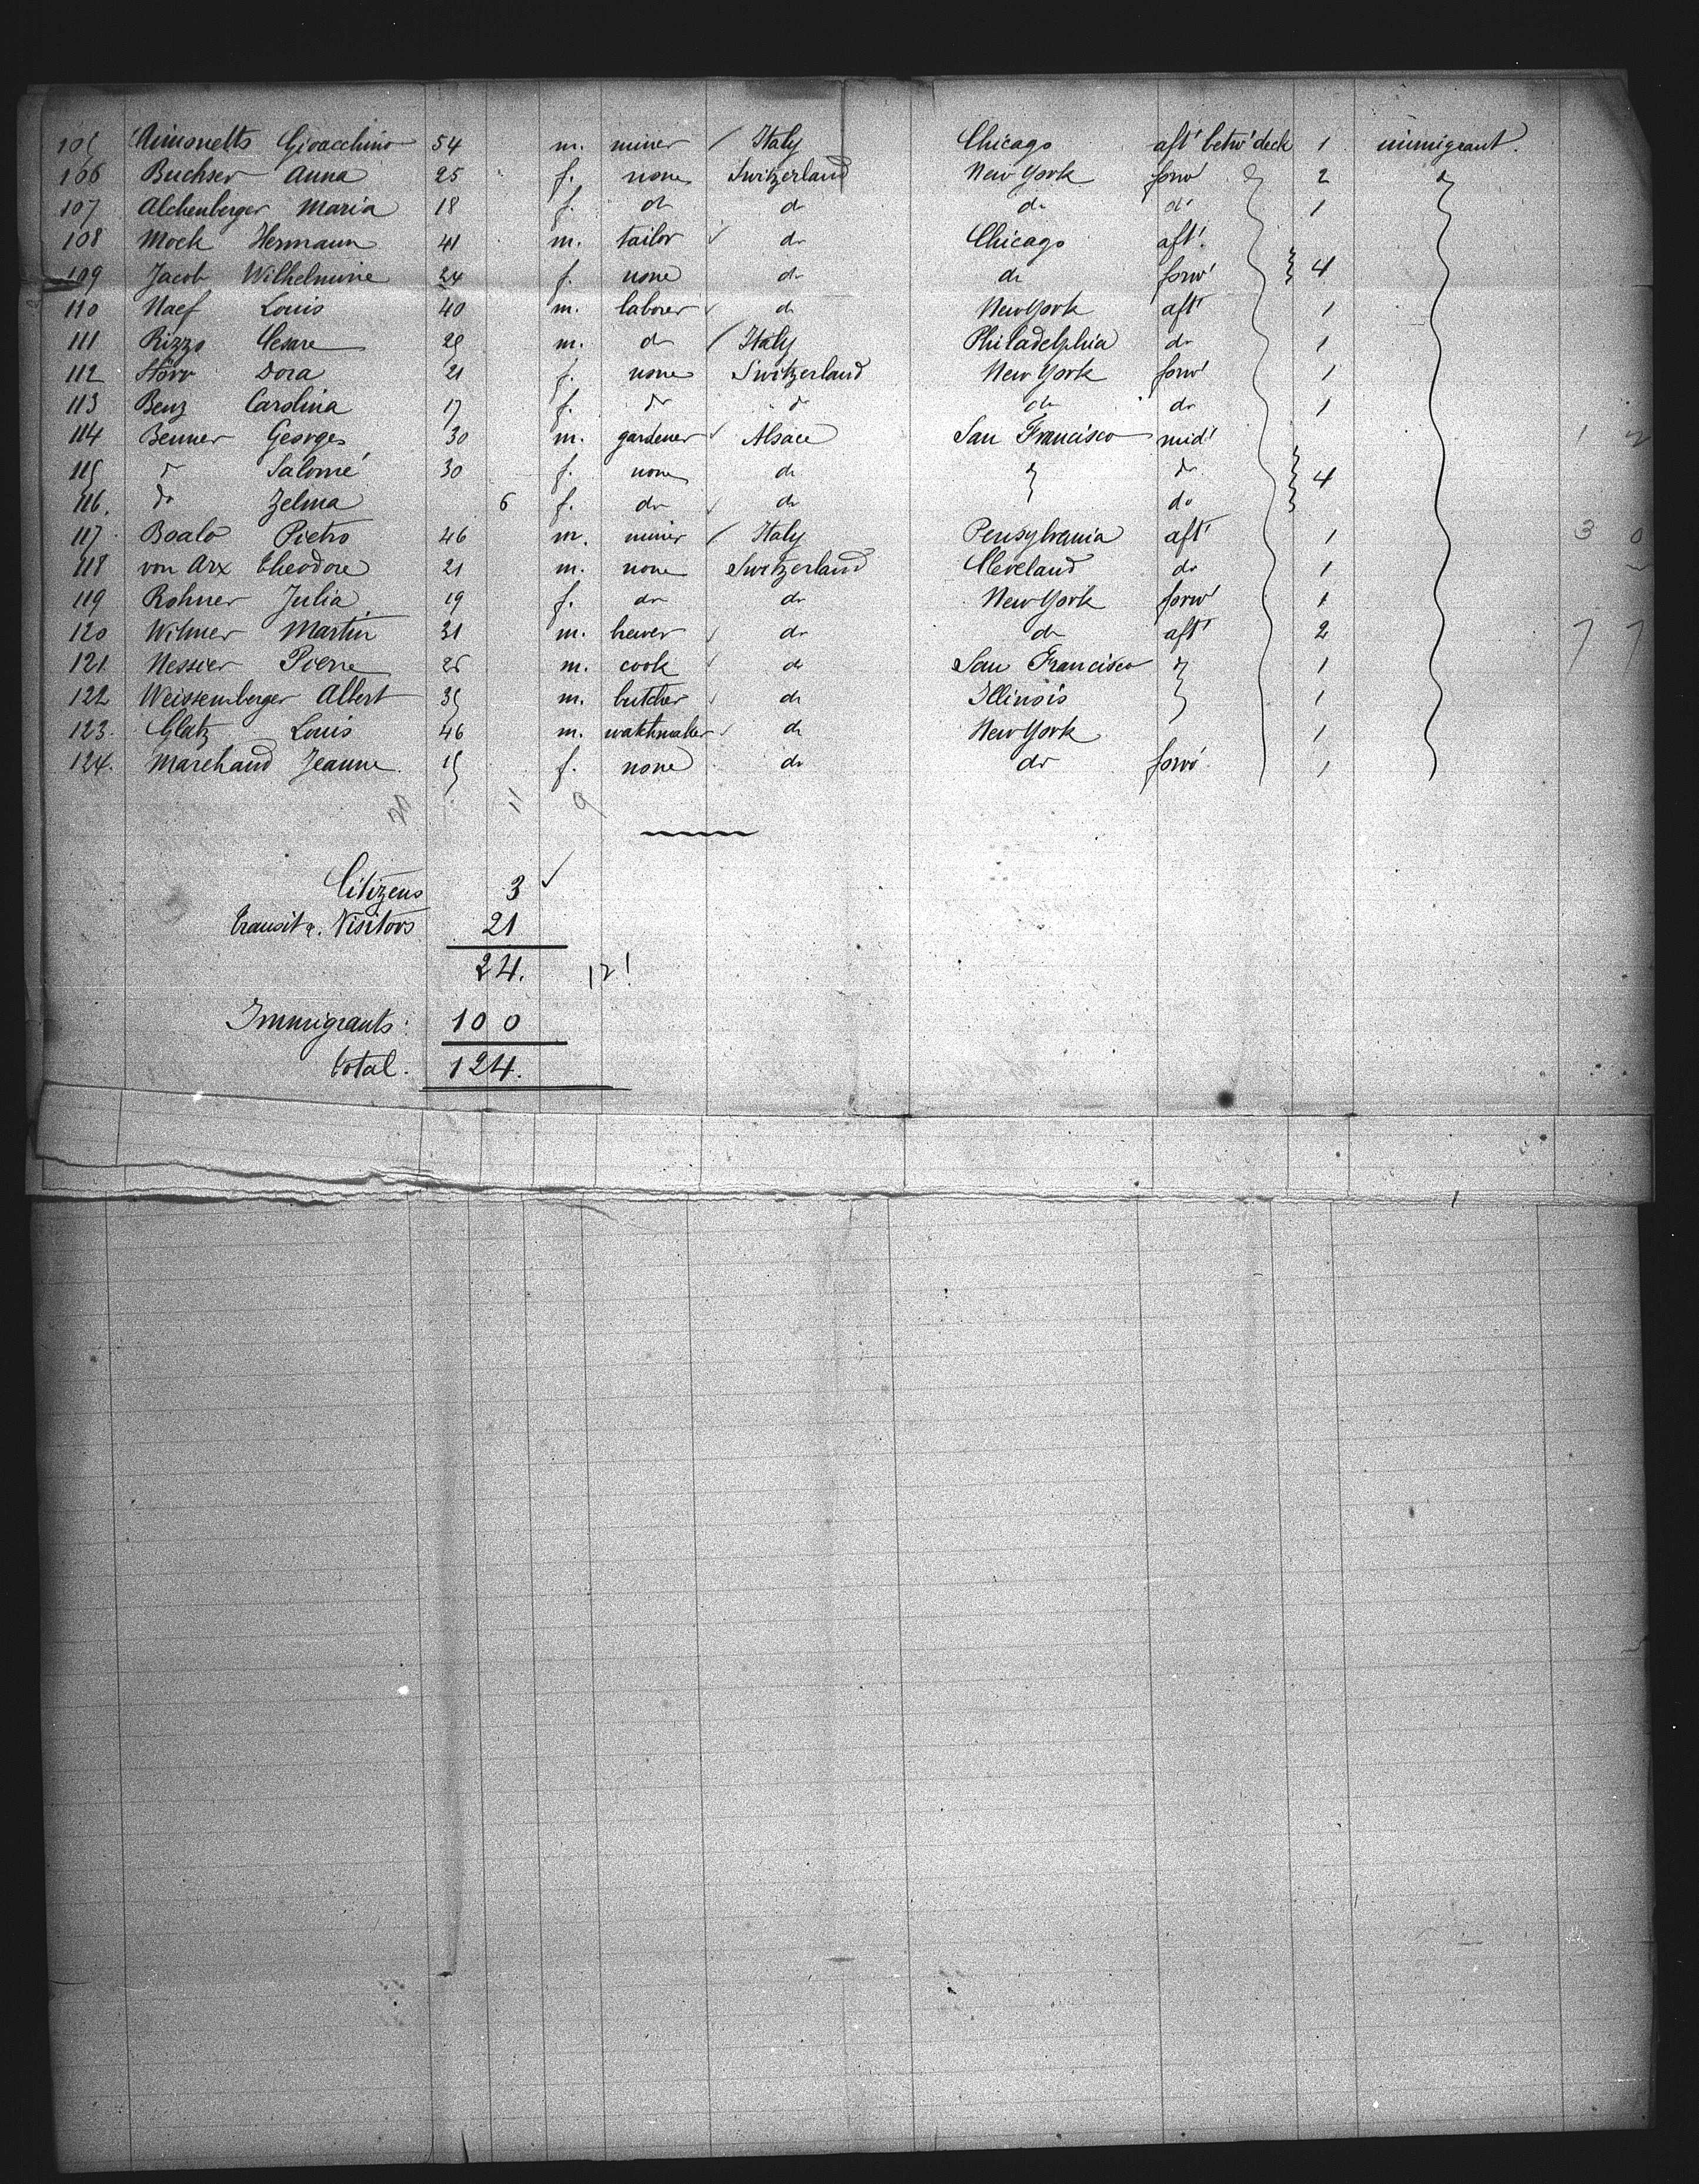 105 Gioacchino 54 m. miner Italy Chicago aft' betw' deck 1 immigrant.
106 Buchser Anna 25 f. none Switzerland New York forw' 2
107 Alchenberger Maria 18 f. do do do do 1
108 Mock Hermann 41 m. tailor do Chicago aft'.
109 Jacob Wilhelmine 24 f. none do do forw' 4
110 Naef Louis 40 m. laborer do New York aft' 1
111 Rizzo Cesare 29 m. do Italy Philadelphia do 1
112 Dora 21 f. none Switzerland New York forw' 1
113 Benz Carolina 17 f. do do do do 1
114 Benner Georges 30 m. gardener Alsace San Francisco mid' 1 2
115 do Salomé 30 f. none do do 4
116. do Zelma 6 f. do do do
117 Boalo Pietro 46 m. miner Italy Pensylvania aft' 1 3 0
118 von Arx Theodore 21 m. none Switzerland Cleveland do 1
119 Rohner Julia 19 f. do do New York forw' 1
120 Wilmer Martin 31 m. hewer do do aft' 2 7 7
121 Messier Pierre 26 m. cook do San Francisco 1
122 Weissemberger Albert 35 m. butcher do Illinois 1
123. Glatz Louis 46 m. watchmaker do New York 1
124. Marchand Jeanne 15 f. none do do forw' 1
11 9
Citizens 3
transit a. Visitors 21
24. 12!
Immigrants: 100
total. 124.